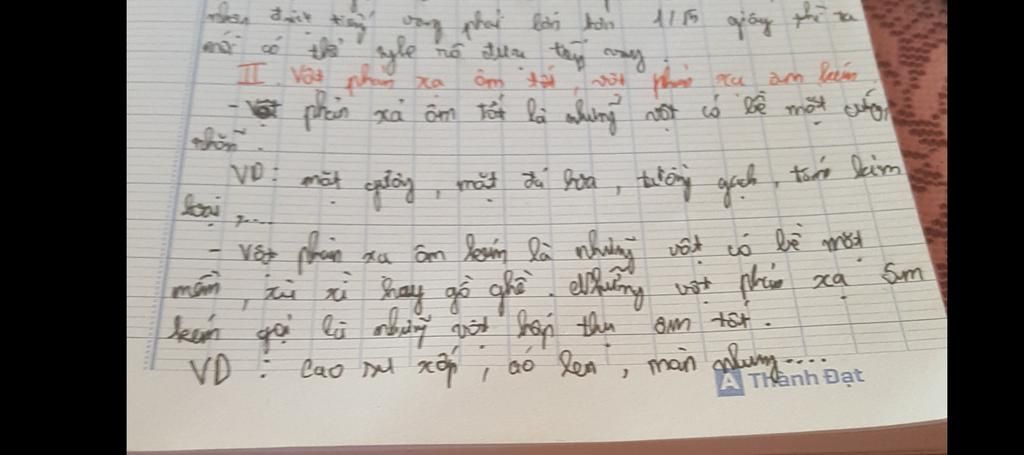 nhau được tiếng vang phải lớn hơn 1/15 giây thì ta
mới có thể nghe rõ được tiếng vang
II. Vật phản xạ âm tốt, vật phản xạ âm kém
- Vật phản xạ âm tốt là những vật có bề mặt cứng,
nhẵn.
VD: mặt gương, mặt đá hoa, tường gạch, tấm kim
loại,....
- Vật phản xạ âm kém là những vật có bề mặt
mềm, xù xì hay gồ ghề. Những vật phản xạ âm
kém gọi là những vật hấp thụ âm tốt.
VD: Cao su xốp, áo len, màn nhung....
A Thành Đạt